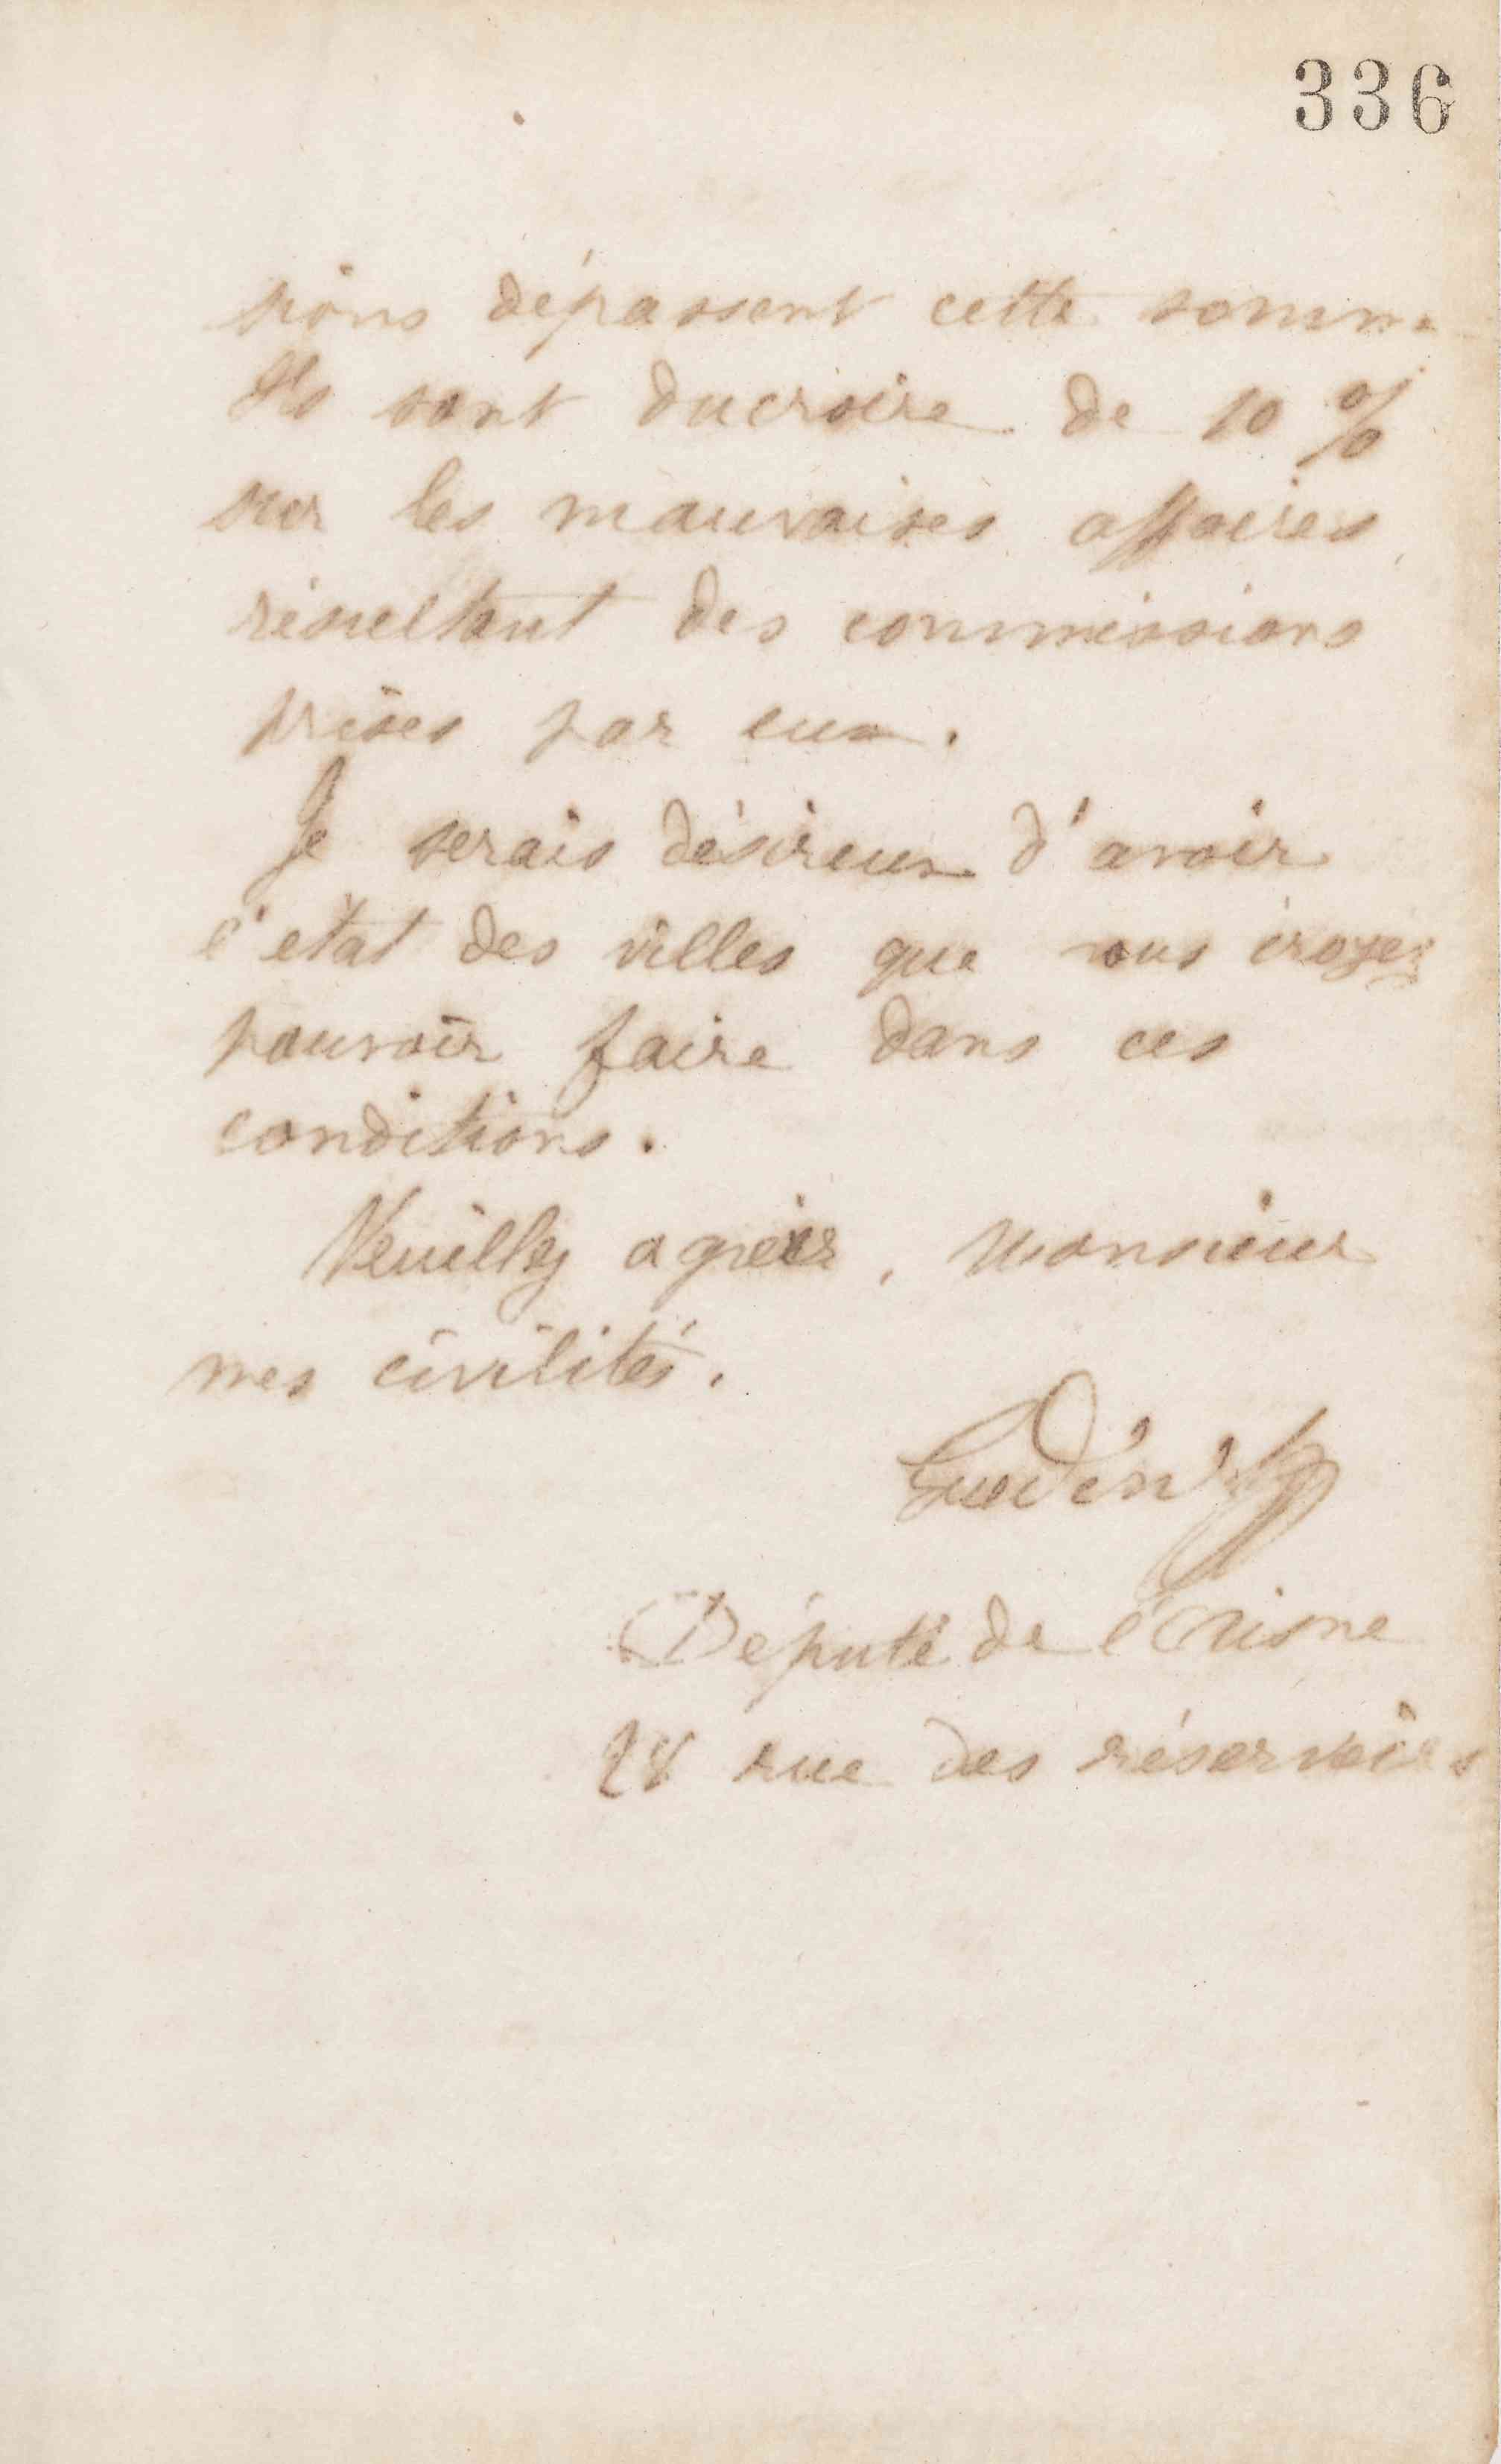 336
sions dépassent cette somme
Ils sont ducroire de 10 %
sur les mauvaises affaires
résultant des commissions
prises par eux.
Je serais désireux d'avoir
l'état des villes que vous croyez
pouvoir faire dans ces
conditions.
Veuillez agréer, Monsieur
mes civilités.
Godin
Député de l'Aisne
28 rue des réservoirs